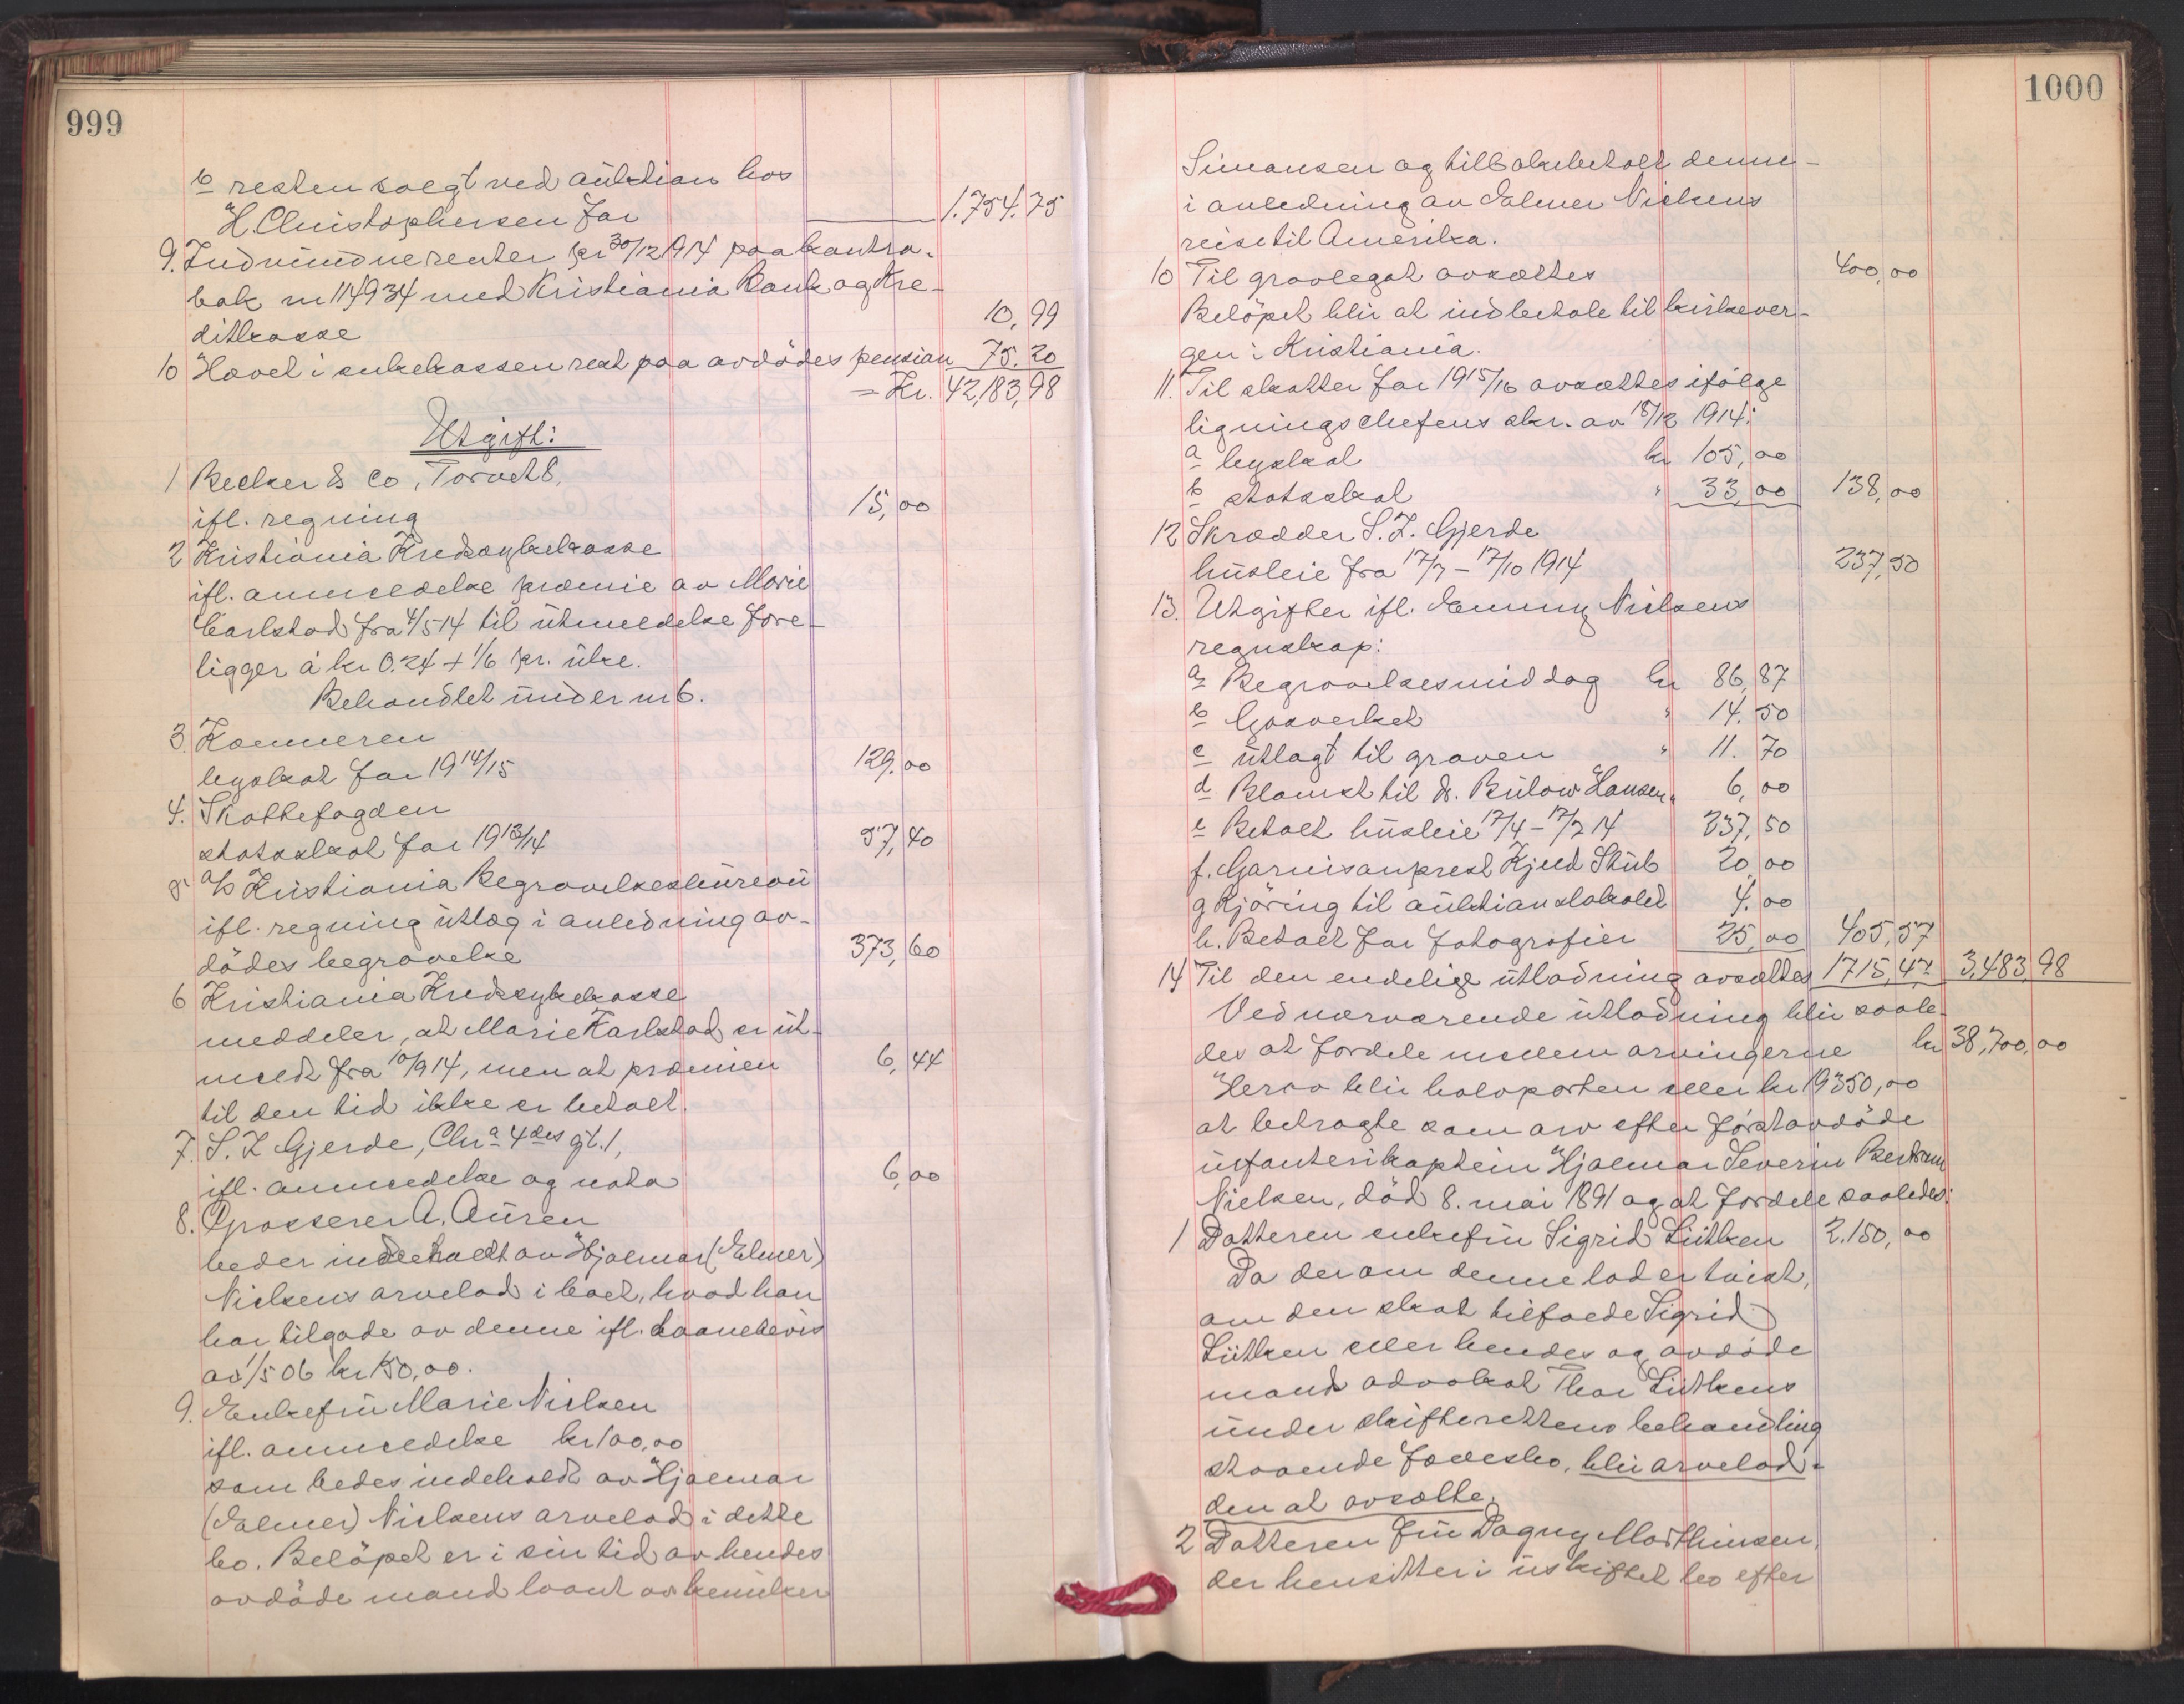 999
b resten solgt ved auktion hos
H. Christophersen for 1.754.75
9. Indvundne renter pr 30/12 1914 paa kontra-
bok nr 114934 med Kristiania Bank og Kre-
ditkasse 10,99
10 Hævet i enkekassen rest paa avdødes pension 75.20
= Kr. 42,183,98
Utgift:
1 Becker & Co, Torvet 8,
ifl. regning 15,00
2 Kristiania Kredssykekasse
ifl. anmeldelse præmie av Marie
Carlstad fra 4/5 14 til utmeldelse fore-
ligger á kr 0.24 + 1/6 pr. uke.
Behandlet under nr 6.
3. Kæmneren
byskat for 1914/15 129.00
4. Skattefogden
statsskat for 1913/14 57,40
5 A/S Kristiania Begravelsesbureau
ifl. regning utlæg i anledning av-
dödes begravelse 373,60
6 Kristiania Kredssykekasse
meddeler, at Marie Karlstad er ut-
meldt fra 10/9 14, men at præmien 6,44
til den tid ikke er betalt.
7. S. Z Gjerde, Chr.a 4des gt. 1,
ifl. anmeldelse og nota 6,00
8. Grosserer A. Auren
beder indeholdt av Hjalmar (Elmer)
Nielsens arvelod i boet, hvad han
har tilgode av denne ifl. laanebevis
av 1/5 06 kr 150,00.
9. Enkefru Marie Nielsen
ifl. anmeldelse kr 100,00
som bedes indeholdt av Hjalmar
(Jalmer) Nielsens arvelod i dette
bo. Belöpet er i sin tid av hendes
avdöde mand laant av kemiker
1000
Simonsen og tilbakebetalt denne
i anledning av Jalmer Nielsens
reise til Amerika.
10 Til gravlegat avsættes 400,00
Belöpet blir at indbetale til kirkever-
gen i Kristiania.
11. Til skatter for 1915/16 avsættes ifölge
ligningschefens skr. av 18/12 1914:
a byskat kr 105,00
b statsskat " 33,00 138,00
12 Skrædder S. Z. Gjerde
husleie fra 17/7 – 17/10 1914 237,50
13. Utgifter ifl. Jenny Nielsens
regnskap:
a Begravelsesmiddag kr 86,87
b Gasverket " 14.50
c utlagt til graven " 11.70
d Blomst til dr. Bülow Hansen " 6,00
e Betalt husleie 17/4 – 17/7 14 237,50
f. Garnisonsprest Kjeld Stub 20,00
g Kjöring til auktionslokalet 4.00
h. Betalt for fotografier 25,00 405,57
14 Til den endelige utlodning avsættes 1715,47 3,483,98
Ved nærværende utlodning blir saale-
des at fordele mellem arvingerne kr 38,700,00
Herav blir halvparten eller kr 19350,00
at betragte som arv efter förstavdöde
infanterikaptein Hjalmar Severin Bertram
Nielsen, död 8. mai 1891 og at fordele saaledes:
1 Datteren enkefru Sigrid Lütken 2.150,00
Da der om denne lod er tvist,
om den skal tilfalde Sigrid
Lütken eller hendes og avdöde
mand advokat Thor Lütkens
under skifterettens behandling
staaende fællesbo, blir arvelod-
den at avsætte.
2 Datteren fru Dagny Marthinsen,
der hensitter i uskiftet bo efter